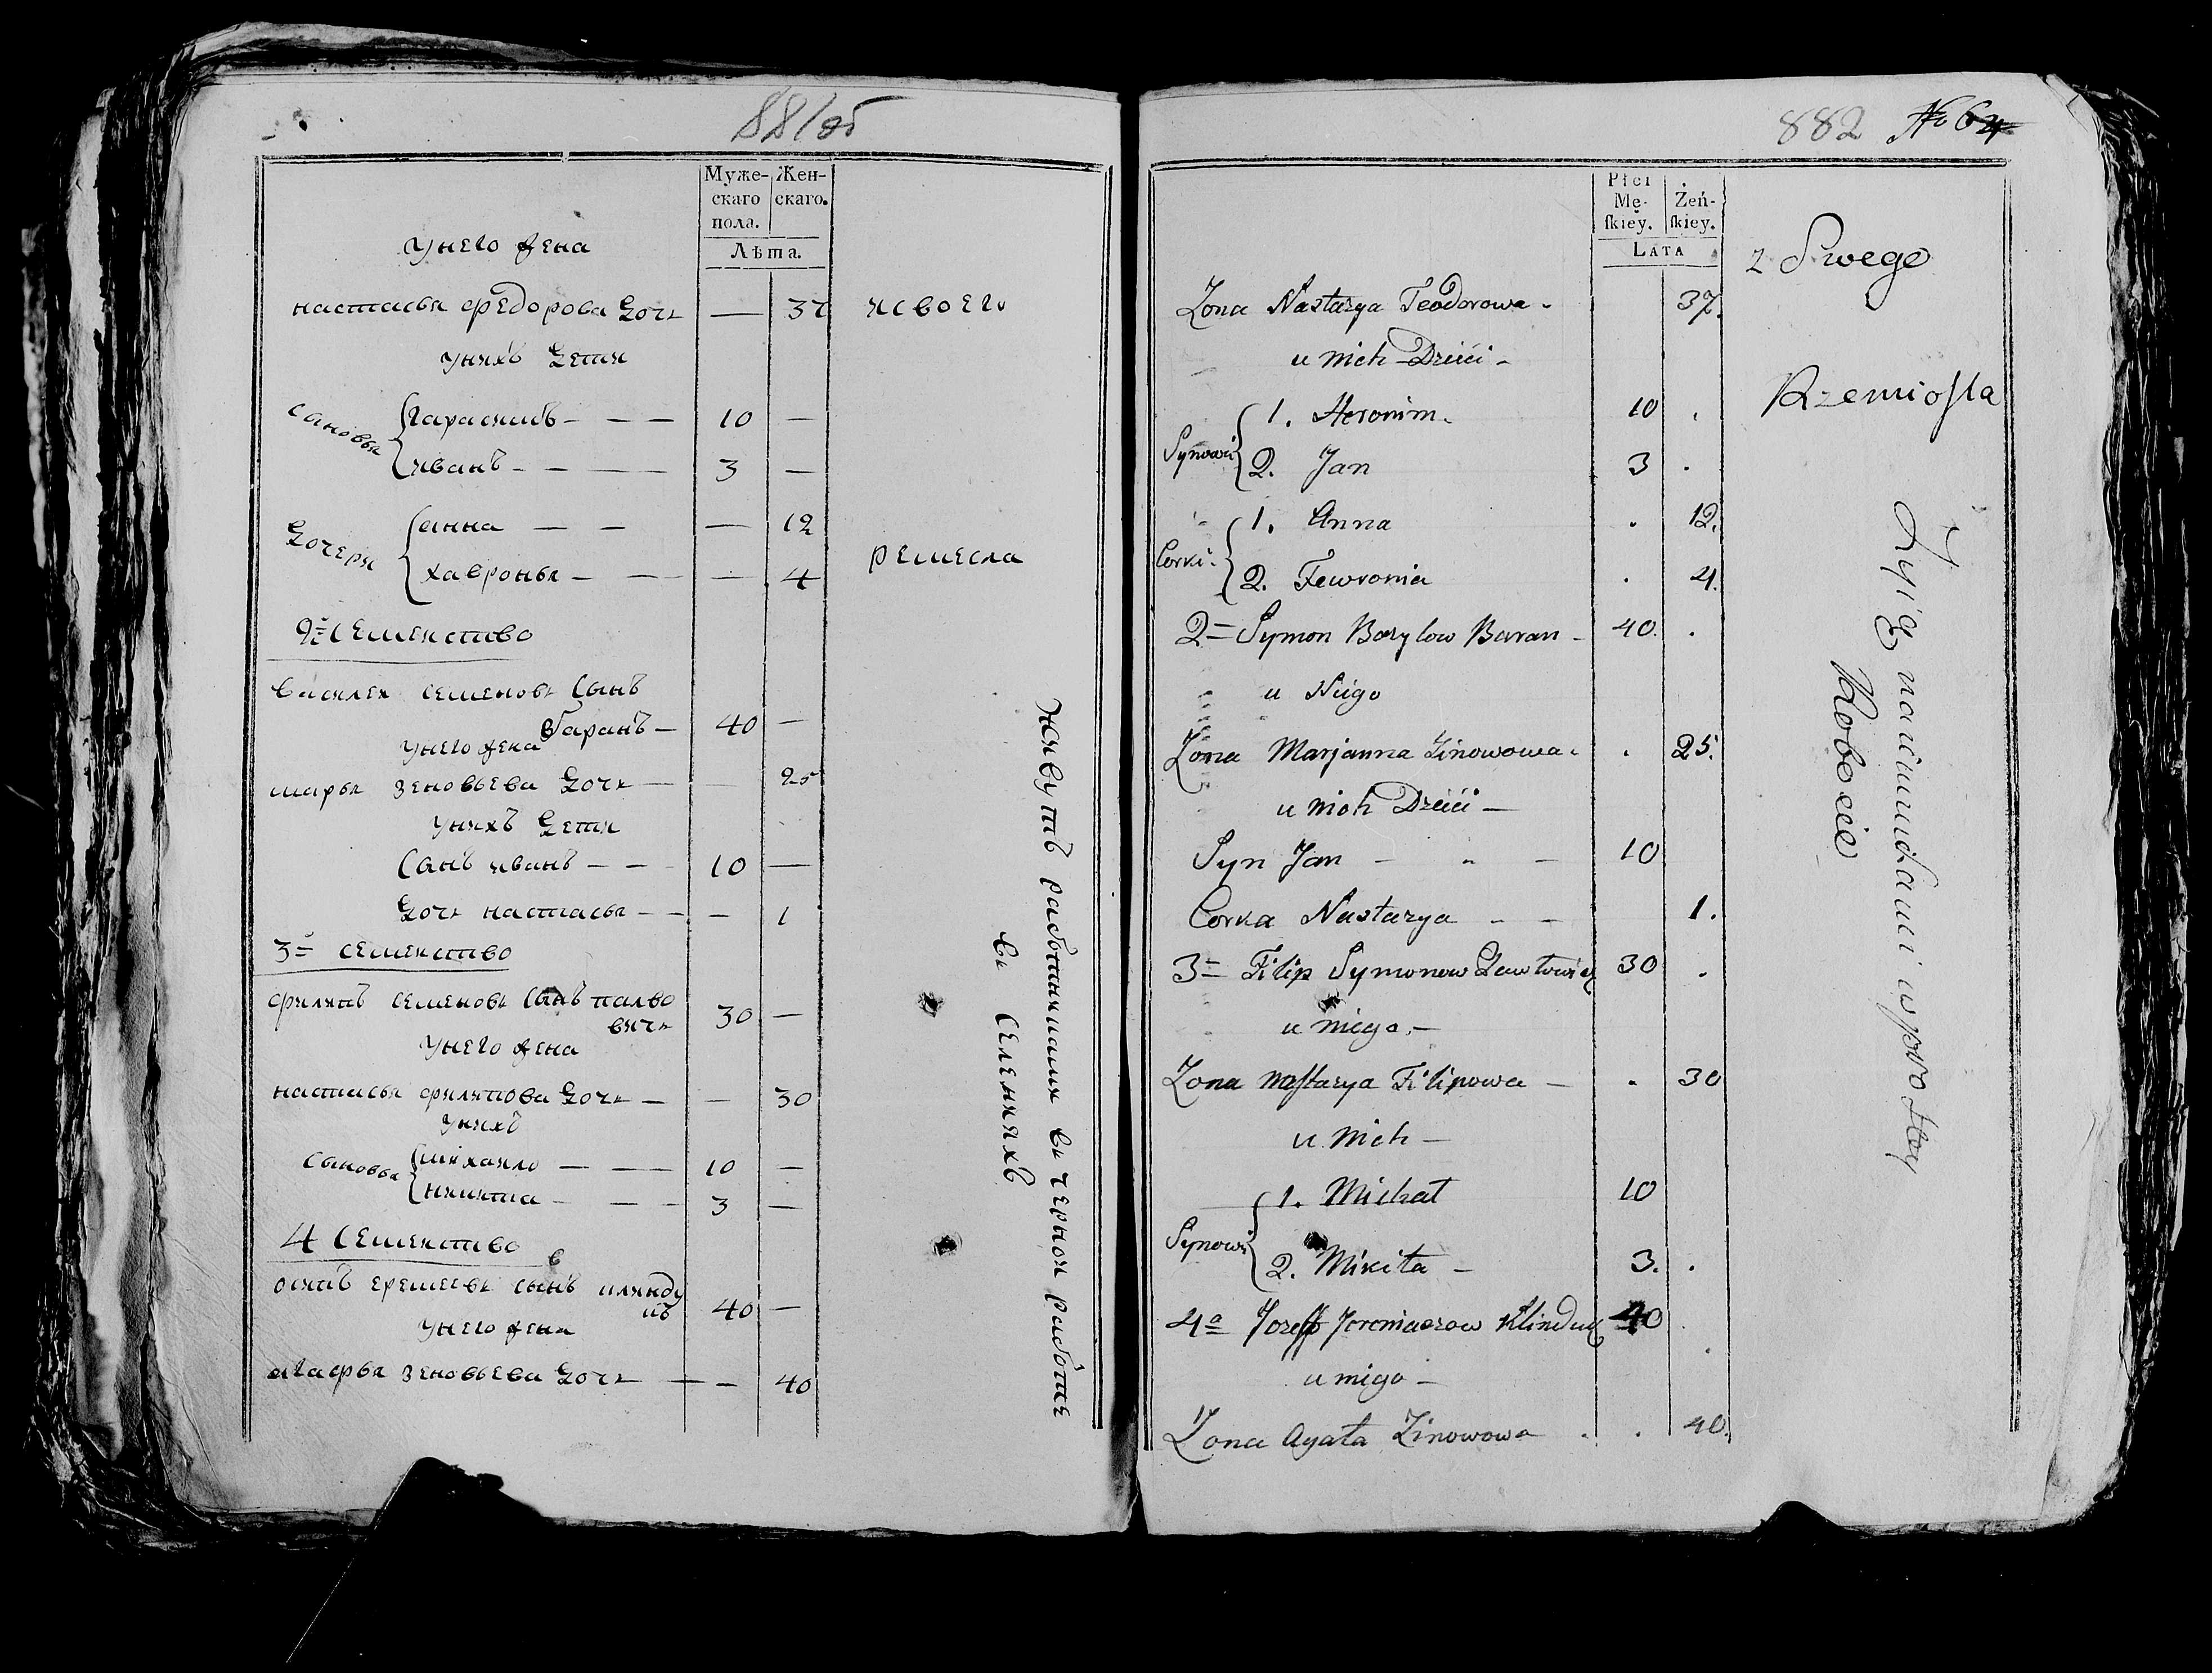 881об
Муже-
скаго
пола.
Жен-
скаго.
Лѣта.
унего жена
настасья федорова дочь — 37
исвоего
унихъ дети
сыновья
гарасимъ — — — 10 —
иванъ — — — — 3 —
дочери
анна — — — 12
хавронья — — — 4
ремесла
2е семеиство
василеи семеновъ сынъ
баранъ — 40 —
унего жена
марья зеновьева дочь — — 25
унихъ дети
сынъ иванъ — — 10 —
дочь настасья — — — 1
3е семеиство
филипъ семеновъ сынъ павло
вичь 30 —
унего жена
настасья филипова дочь — — 30
унихъ
сыновья
михаило — — — 10 —
никита — — — 3 —
4 семеиство
осипъ еремеевъ сынъ
40 —
унего жена
агафья зеновьева дочь — — 40
живутъ работниками въ чернои работе
въ селенияхъ
882 № 64
Płci
Mę-
ſkiey.
Żeń-
ſkiey.
LATA
z Swego
Rzemiosła
Żona Nastazya Teodorowa - 37.
u nich Dzieci -
Synowi
1. Heronim. 10 .
2. Jan 3 .
Corki
1. Anna . 12.
2. Fewronia . 4.
2= Symon Bazylow Baran - 40. .
u Niego
Żona Marjanna Zinowowa . 25.
u nich Dzieci —
Syn Jan - " - 10
Corka Nastazya - - 1.
3= Filip Symonow Pawłowicz 30 .
u niego. —
Żona Nastazya Filipowa — . 30
u Nich —
Synowi
1. Michał 10
2. Mikita — 3. .
4o Jozeff Jeremiaszow Klinduk 40 .
u niego —
Żona Agata Zinowowa . . 40.
Żyią naiemnikami w prostey
Robocie